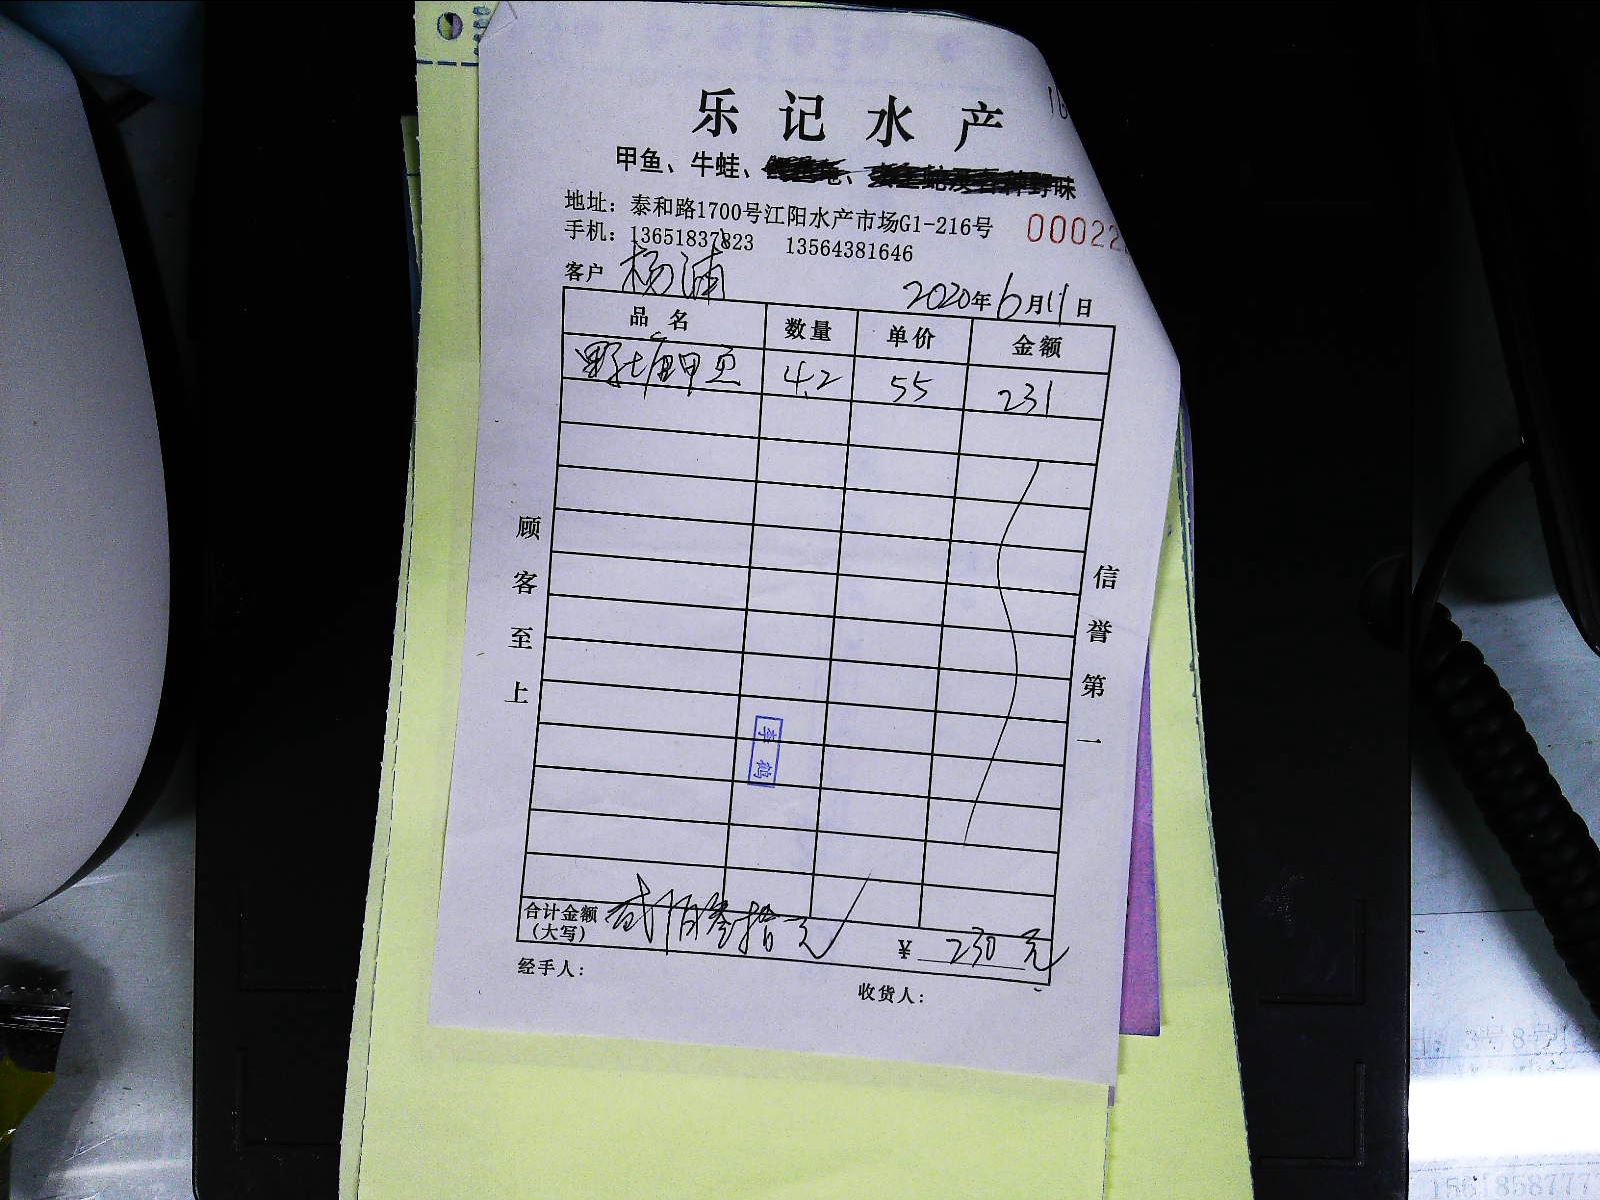 16
乐记水产
甲鱼、牛蛙、
地址：泰和路1700号江阳水产市场G1-216号
00022
手机：13651837823 13564381646
客户 杨浦 2020年6月11日
品名 数量 单价 金额
野塘甲鱼 4.2 55 231
顾客至上
信誉第一
李鹤
合计金额（大写） 贰佰叁拾元 ¥ 230元
经手人：
收货人：